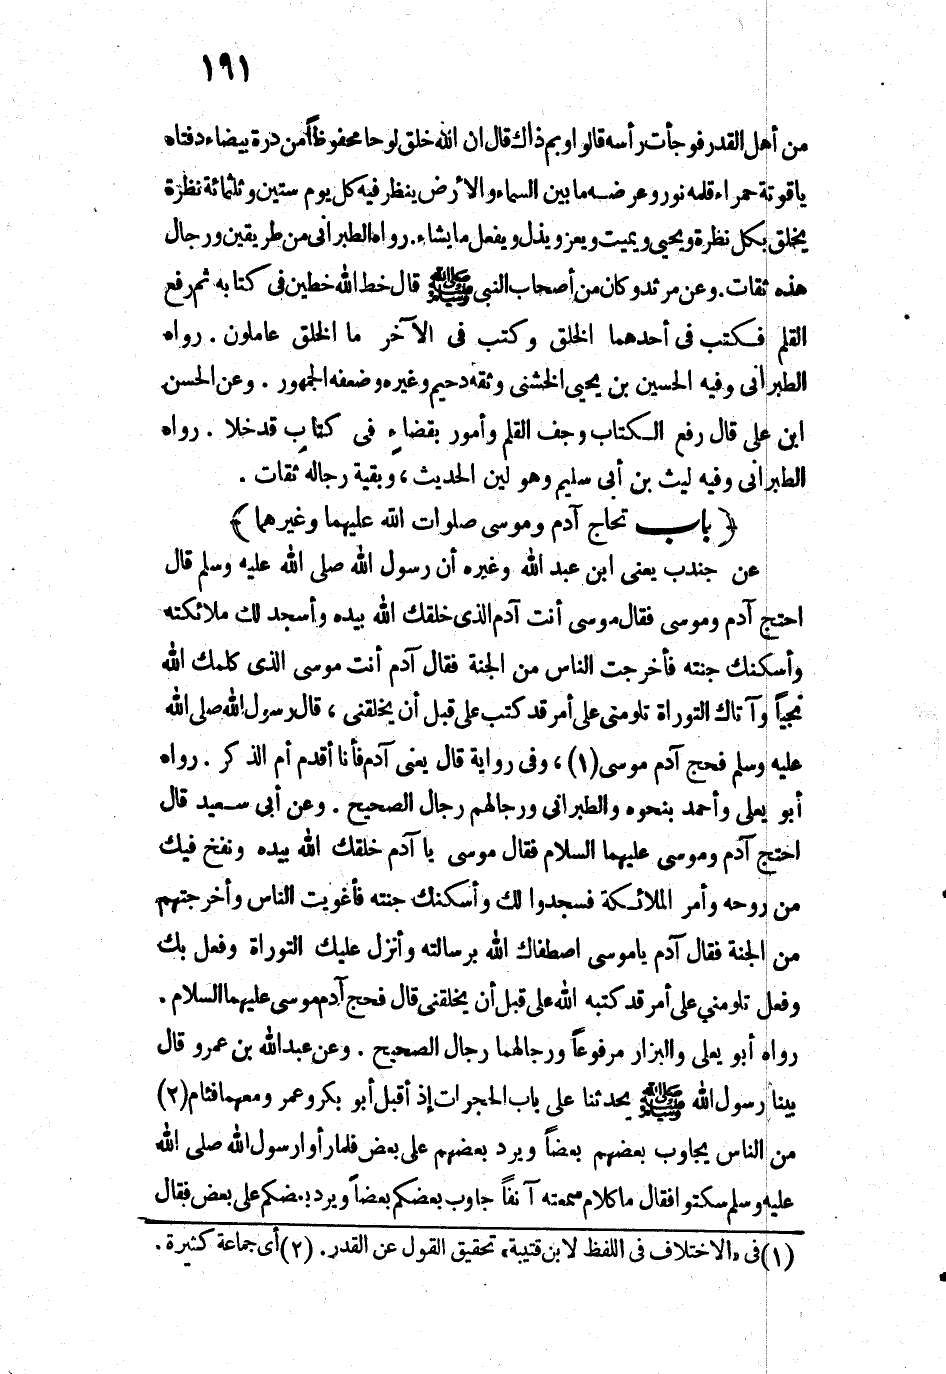 ١٩١
من أهل القدر فوجأت رأسه قالوا وبم ذاك قال ان الله خلق لوحا محفوظاً من درة بيضاء دفتاه
ياقوتة حمراء قلمه نور وعرضه ما بين السماء والأرض ينظر فيه كل يوم ستين وثلثمائة نظرة
يخلق بكل نظرة ويحيى ويميت ويعز ويذل ويفعل ما يشاء. رواه الطبرانى من طريقين ورجال
هذه ثقات. وعن مرثد وكان من أصحاب النبى ﷺ قال خط الله خطين فى كتابه ثم رفع
القلم فكتب فى أحدهما الخلق وكتب فى الآخر ما الخلق عاملون . رواه
الطبرانى وفيه الحسين بن يحيى الخشنى وثقه دحيم وغيره وضعفه الجمهور . وعن الحسن
ابن على قال رفع الكتاب وجف القلم وأمور بقضاءٍ فى كتابٍ قد خلا . رواه
الطبرانى وفيه ليث بن أبى سليم وهو لين الحديث، وبقية رجاله ثقات .
﴿ باب تحاج آدم وموسى صلوات الله عليهما وغيرهما ﴾
عن جندب يعنى ابن عبد الله وغيره أن رسول الله صلى الله عليه وسلم قال
احتج آدم وموسى فقال موسى أنت آدم الذى خلقك الله بيده وأسجد لك ملائكته
وأسكنك جنته فأخرجت الناس من الجنة فقال آدم أنت موسى الذى كلمك الله
نجياً وآتاك التوراة تلومنى على أمر قد كتب على قبل أن يخلقنى ، قال رسول الله صلى الله
عليه وسلم فحج آدم موسى (١) ، وفى رواية قال يعنى آدم فأنا أقدم أم الذكر . رواه
أبو يعلى وأحمد بنحوه والطبرانى ورجالهم رجال الصحيح . وعن أبى سعيد قال
احتج آدم وموسى عليهما السلام فقال موسى يا آدم خلقك الله بيده ونفخ فيك
من روحه وأمر الملائكة فسجدوا لك وأسكنك جنته فأغويت الناس وأخرجتهم
من الجنة فقال آدم ياموسى اصطفاك الله برسالته وأنزل عليك التوراة وفعل بك
وفعل تلومني على أمر قد كتبه الله على قبل أن يخلقنى قال فحج آدم موسى عليهما السلام .
رواه أبو يعلى والبزار مرفوعاً ورجالهما رجال الصحيح . وعن عبدالله بن عمرو قال
بينا رسول الله ﷺ يحدثنا على باب الحجرات إذ أقبل أبو بكر وعمر ومعهما فئام (٢)
من الناس يجاوب بعضهم بعضاً ويرد بعضهم على بعض فلما رأوا رسول الله صلى الله
عليه وسلم سكتوا فقال ما كلام سمعته آنفاً جاوب بعضكم بعضاً ويرد بعضكم على بعض فقال
(١) فى «الاختلاف فى اللفظ لابن قتيبة» تحقيق القول عن القدر. (٢) أى جماعة كثيرة .